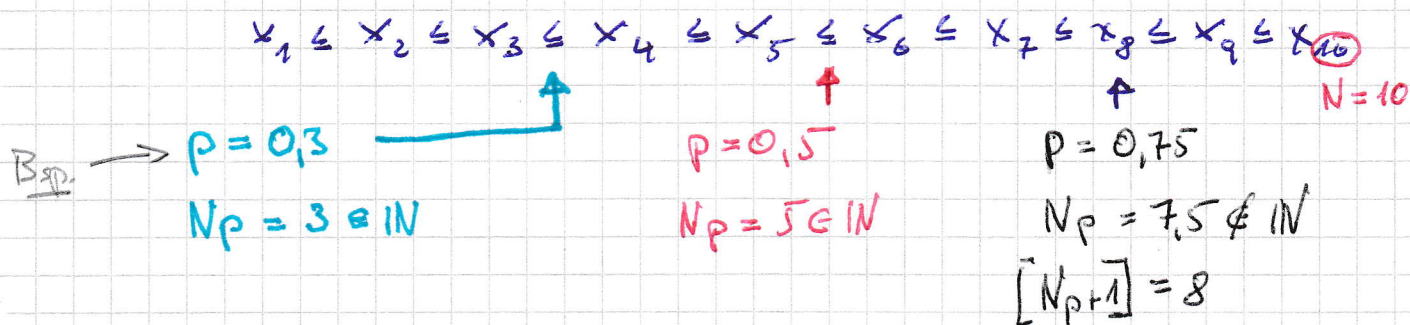 x₁ ≤ x₂ ≤ x₃ ≤ x₄ ≤ x₅ ≤ x₆ ≤ x₇ ≤ x₈ ≤ x₉ ≤ x₁₀
N = 10
Bsp. → p = 0,3
p = 0,5
p = 0,75
Np = 3 ∈ ℕ
Np = 5 ∈ ℕ
Np = 7,5 ∉ ℕ
[Np+1] = 8